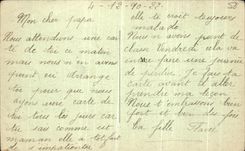 4-12-1902?
Mon cher papa
Nous attendions une car
te de toi ce matin
mais nous n'en avons
point eu. Arrange
toi pour que nous
ayons une carte de
toi tous les jours car
tu sais comme est
maman elle a tôt fait
de s'impatienter
elle te croit toujours
malade.
Nous n'avons point de
classe Vendredi cela va
faire une journée
de perdue. Je fais ta
carte avant d'aller
prendre ma leçon
Nous t'embrassons bien
fort et bien des fois
Ta fille